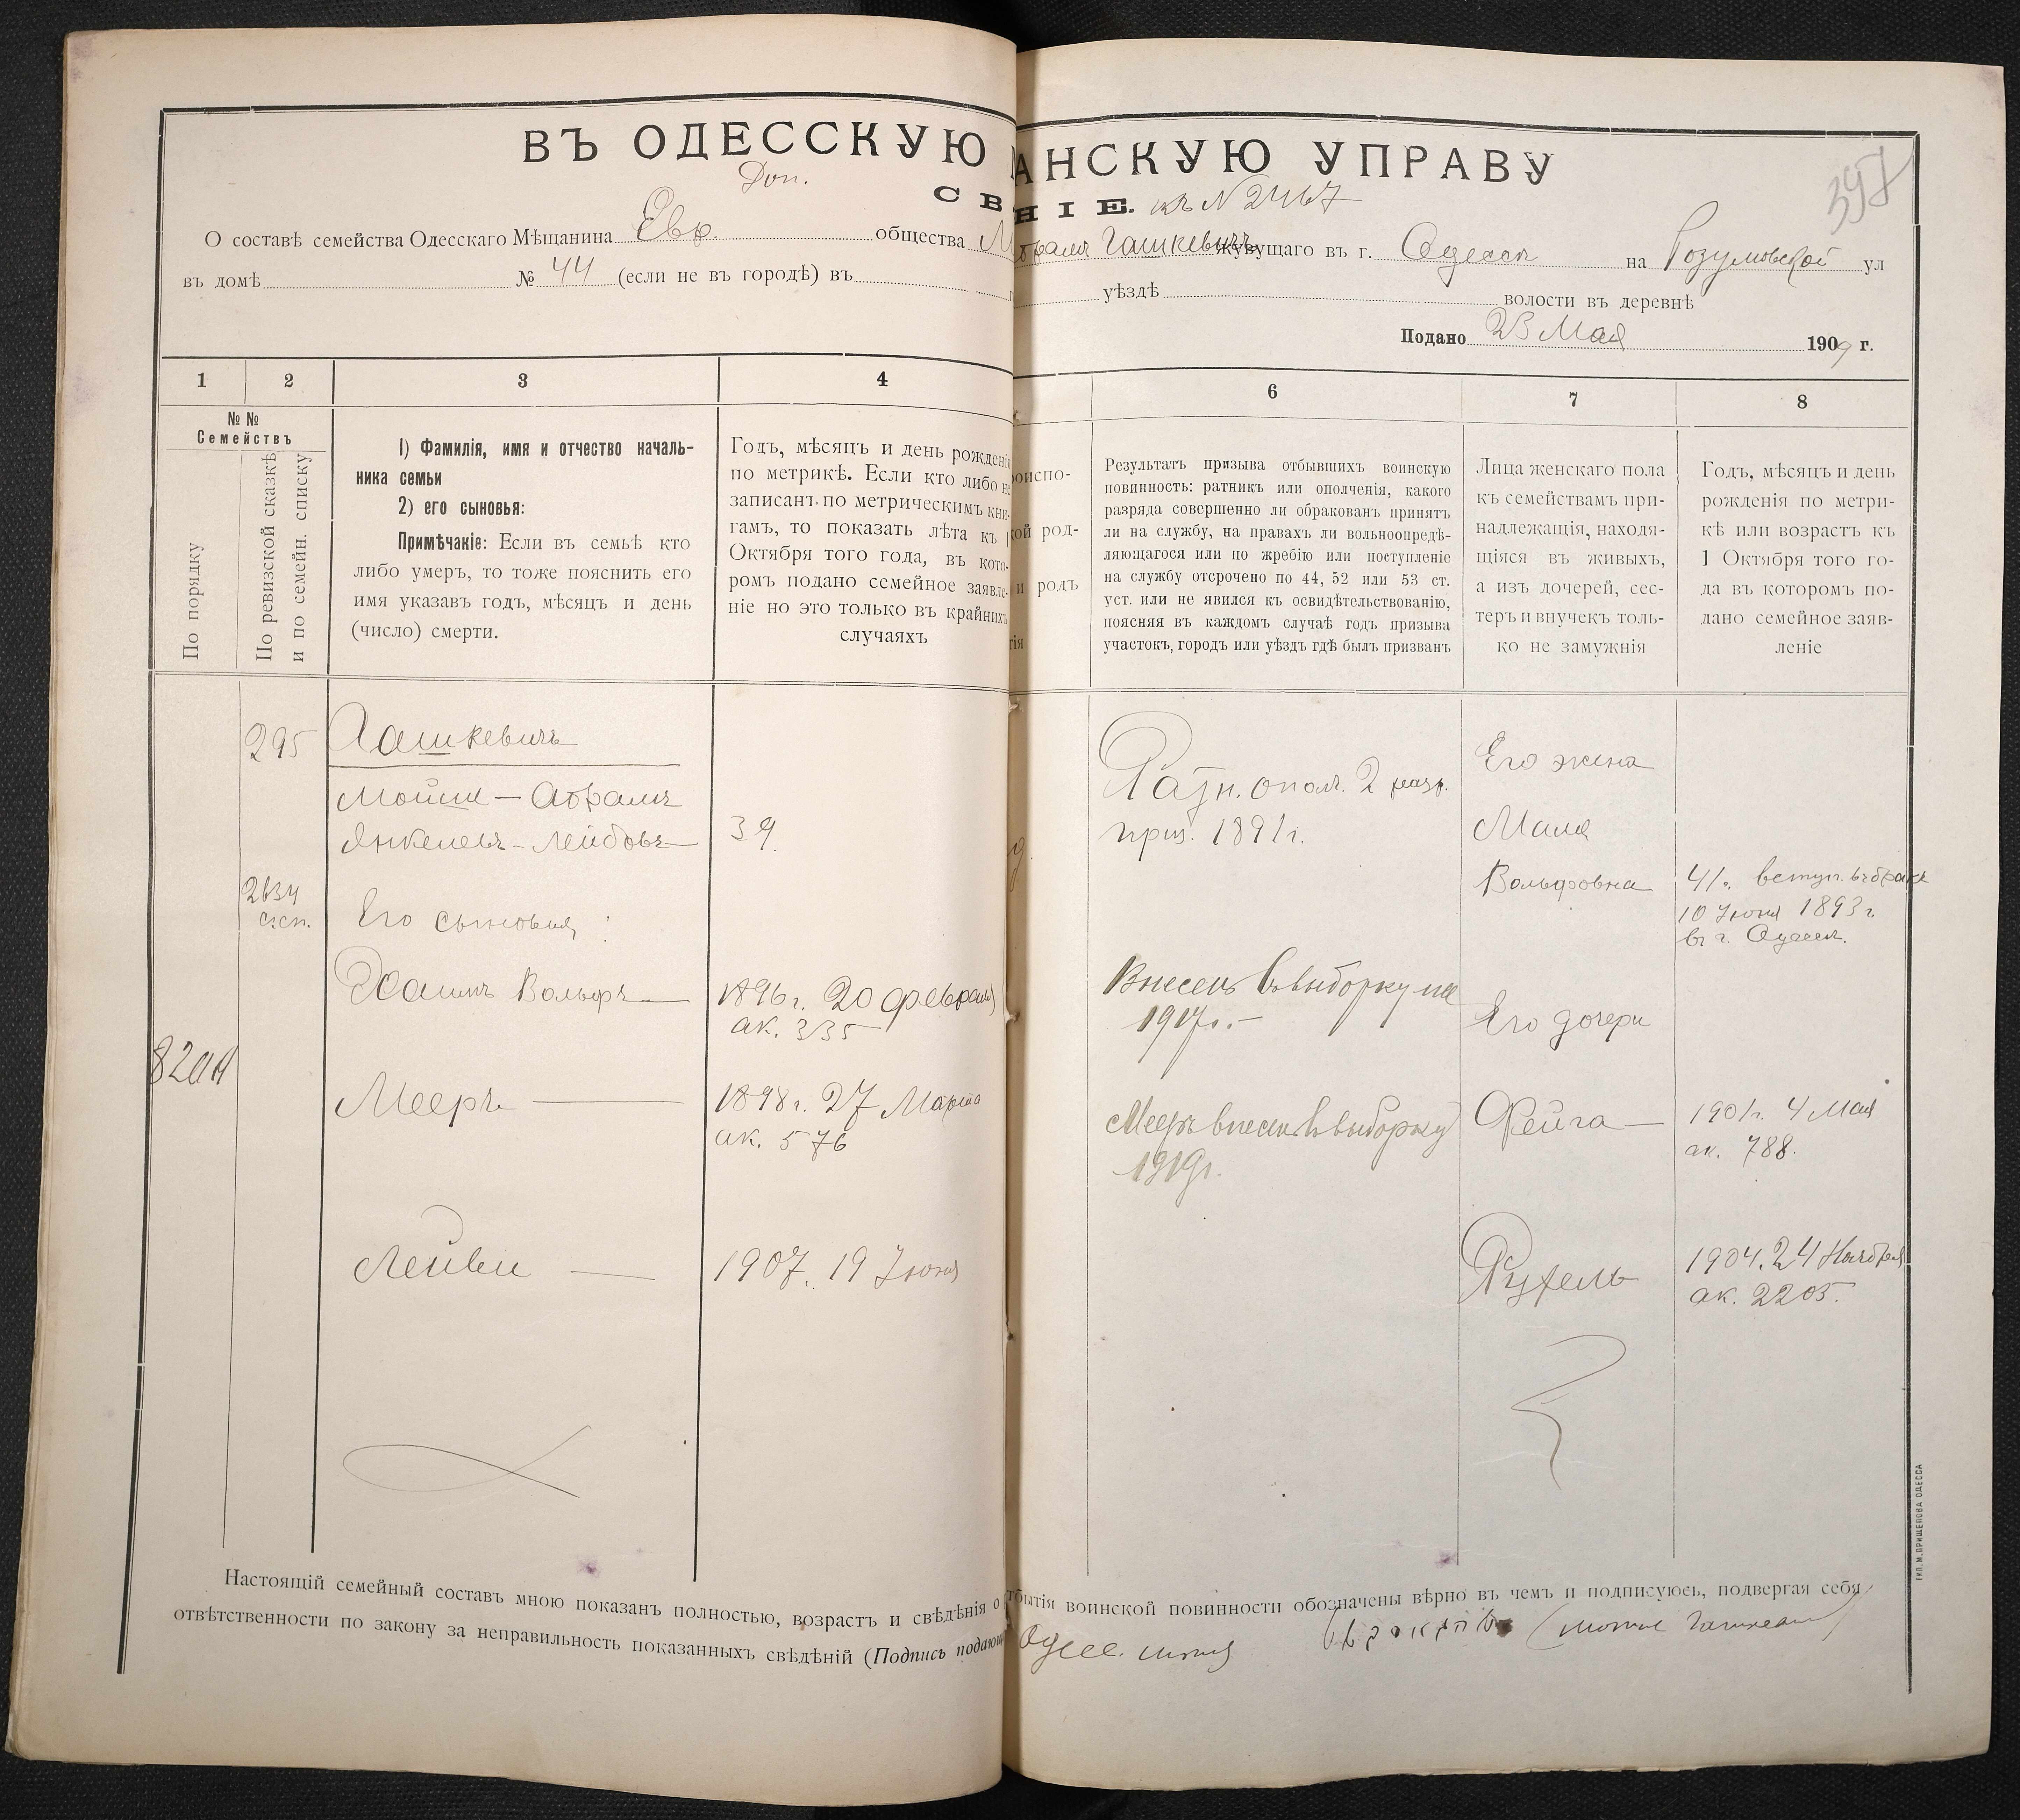 ВЪ ОДЕССКУЮ АНСКУЮ УПРАВУ
Доп.
СВ НІЕ. къ N 2467
397
О составѣ семейства Одесскаго Мѣщанина Евр. общества М брамъ Гашкевичъ жувущаго въ г. Одессѣ на Розумовской ул
въ домѣ № 44 (если не въ городѣ) въ уѣздѣ волости въ деревнѣ
Подано 23 Мая 1909 г.
1 2 3 4 6 7 8
№ №
Семействъ
По порядку
По ревизской сказкѣ
и по семейн. списку
1) Фамилія, имя и отчество началь-
ника семьи
2) его сыновья:
Примѣчаніе: Если въ семьѣ кто
либо умеръ, то тоже пояснить его
имя указавъ годъ, мѣсяцъ и день
(число) смерти.
Годъ, мѣсяцъ и день рожденія
по метрикѣ. Если кто либо не
записанъ по метрическимъ кни-
гамъ, то показать лѣта къ
Октября того года, въ кото-
ромъ подано семейное заявле-
ніе но это только въ крайнихъ
случаяхъ
роиспо-
кой род-
и родъ
тія
Результатъ призыва отбывшихъ воинскую
повинность: ратникъ или ополченія, какого
разряда совершенно ли обракованъ принятъ
ли на службу, на правахъ ли вольноопредѣ-
ляющагося или по жребію или поступленіе
на службу отсрочено по 44, 52 или 53 ст.
уст. или не явился къ освидѣтельствованію,
поясняя въ каждомъ случаѣ годъ призыва
участокъ, городъ или уѣздъ гдѣ былъ призванъ
Лица женскаго пола
къ семействамъ при-
надлежащія, находя-
щіяся въ живыхъ,
а изъ дочерей, сес-
теръ и внучекъ толь-
ко не замужнія
Годъ, мѣсяцъ и день
рожденія по метри-
кѣ или возрастъ къ
1 Октября того го-
да въ которомъ по-
дано семейное заяв-
леніе
295 Гашкевичъ
Мойше - Абрамъ
Янкелевъ - Лейбовъ 39.
Ратн. опол. 2 разр.
приз. 1891 г.
Его жена
Маля
Вольфовна
41. вступ. въ бракъ
10 Іюня 1893 г.
въ г. Одессѣ.
2634
с. сп.
Его сыновья:
Хаимъ Вольфъ 1896 г. 20 февраля
ак. 335
Внесенъ въ выборку на
1917 г.
Его дочери
Мееръ 1898 г. 27 Марта
ак. 576
Мееръ внесен въ выборку
1919 г.
Фейга 1901 г. 4 Мая
ак. 788.
Лейви 1907. 19 Іюня
Рухель 1904. 24 Ноября
ак. 2205.
Настоящій семейный составъ мною показанъ полностью, возрастъ и свѣдѣнія о тбытія воинской повинности обозначены вѣрно въ чемъ и подписуюсь, подвергая себя
отвѣтственности по закону за неправильность показанныхъ свѣдѣній (Подпись подающ
ТИП. М. ПРИЩЕПОВА ОДЕССА